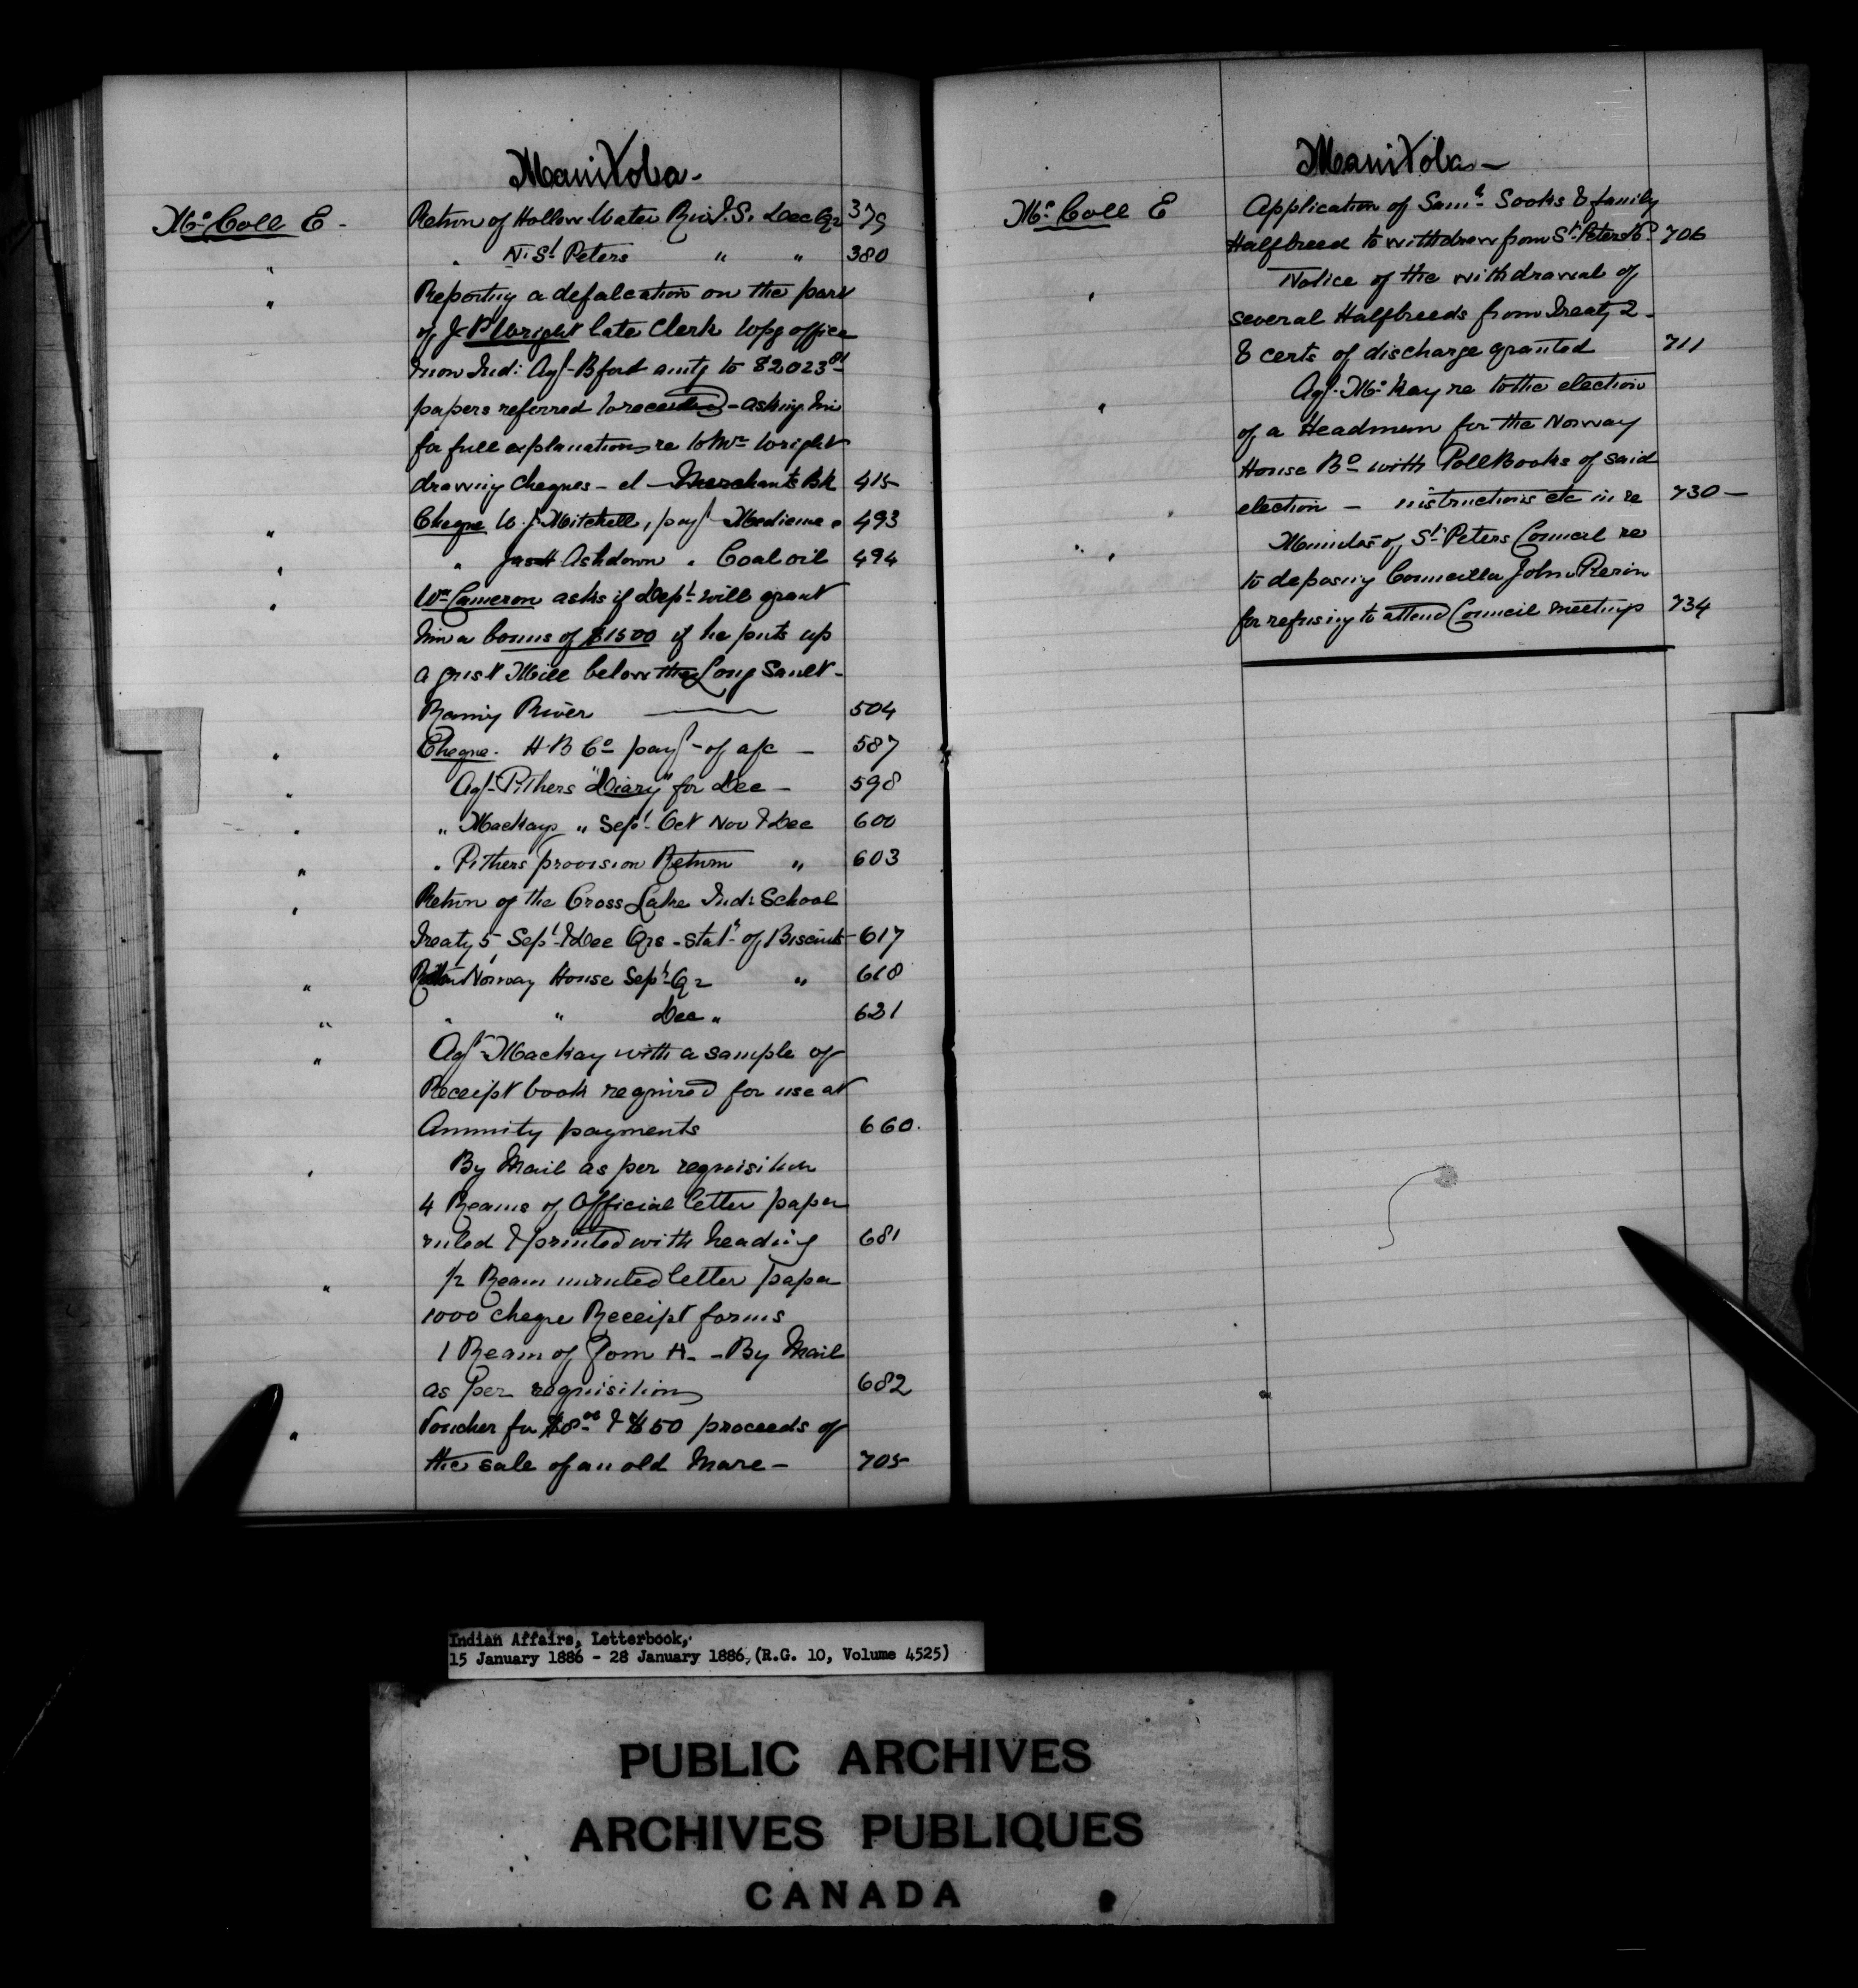 Manitoba -
McColl E - Return of Hollow Water Riv I. S. Dec Qr 379
" " N. St Peters " " 380
" Reporting a defalcation on the part
of J. P. Wright late Clerk Wpg office
from Ind: Agt - B fort amtg to $2023 81
papers referred to received - asking him
for full explanations re to Mr Wright
drawing cheques - et - Merchants Bk 415
" Cheque W. J. Mitchell, payt - Medicine " 493
" " Jas H Ashdown " Coal oil 494
" Wm Cameron asks if Dept will grant
him a bonus of $1500 if he puts up
a grist Mill below the Long Sault -
Rainy River 504
" Cheque - H B Co payt - of a/c - 587
" Agt - Pithers "Diary" for Dec - 598
" " Mackays " Sept - Oct Nov & Dec 600
" " Pithers provision Return " 603
" Return of the Cross Lake Ind: School
Treaty 5 Sept - & Dec Qrs - statt of Biscuits - 617
" Return Norway House Sept Qr " 618
" " " Dec " 621
" Agt - Mackay with a sample of
Receipt book required for use at
Annuity payments 660.
" By Mail as per requisition
4 Reams of Official letter paper
ruled & printed with heading 681
" 1/2 Ream unruled letter paper
1000 cheque Receipt forms
1 Ream of Form H. - By Mail
as per requisition 682
" Voucher for $8 00 & $ 50 proceeds of
the sale of an old Mare - 705
Manitoba -
McColl E Application of Saml Sooks & family
Halfbreed to withdraw from St Peters Bd 706
" Notice of the withdrawal of
several Halfbreeds from Treaty 2 -
& certs of discharge granted 711
" Agt. McKay re to the election
of a Headman for the Norway
House Bd with Poll Books of said
election - instructions etc in re 730 -
" Minutes of St Peters Council re
to deposing Councillor John Prerin
for refusing to attend Council meetings 734
Indian Affairs, Letterbook,
15 January 1886 - 28 January 1886, (R.G. 10, Volume 4525)
PUBLIC ARCHIVES
ARCHIVES PUBLIQUES
CANADA